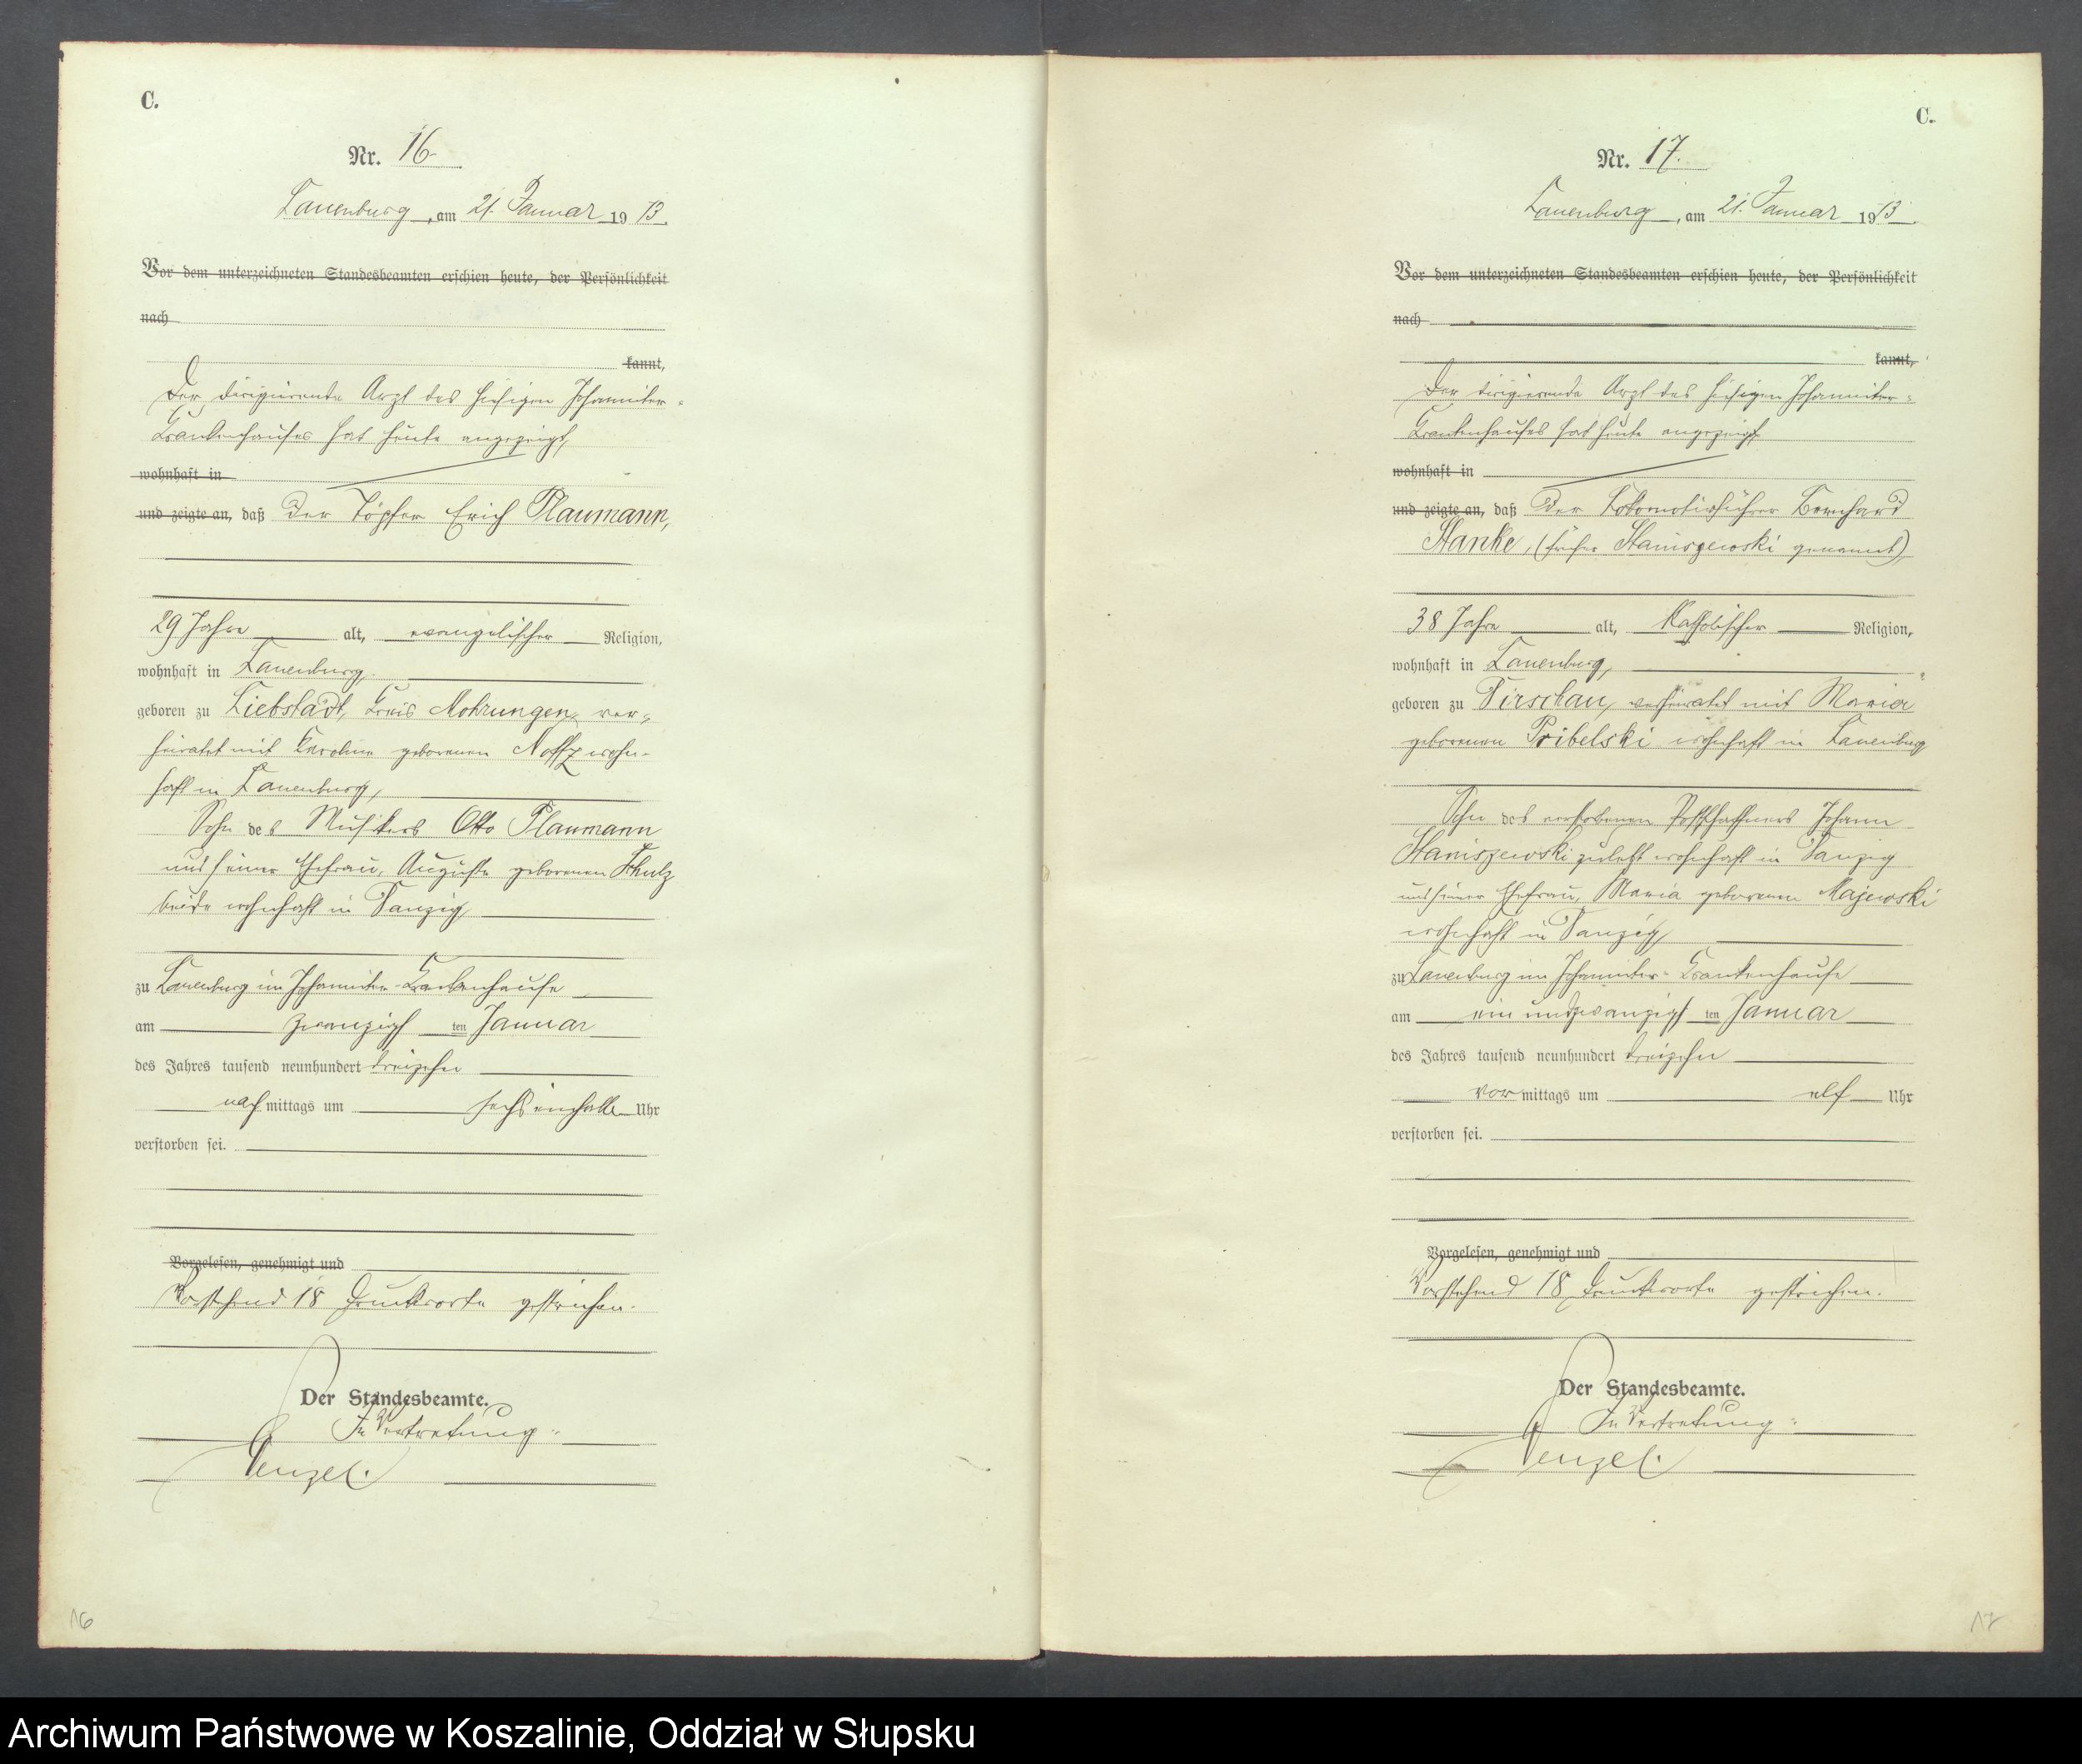 C.
Nr. 16
Lauenburg, am 21. Januar 1913.
Vor dem unterzeichneten Standesbeamten erschien heute, der Persönlichkeit
nach
kannt,
Der dirigierende Arzt des hiesigen Johanniter-
Krankenhauses hat heute angezeigt,
wohnhaft in
und zeigte an, daß der Töpfer Erich Plaumann,
29 Jahre alt, evangelischer Religion,
wohnhaft in Lauenburg,
geboren zu Liebstadt, Kreis Mohrungen, ver-
heiratet mit Karoline geborenen Noffz wohn-
haft in Lauenburg,
Sohn des Musikers Otto Plaumann
und seiner Ehefrau, Auguste geborenen Schulz
beide wohnhaft in Danzig,
zu Lauenburg im Johanniter-Krankenhause
am zwanzigsten Januar
des Jahres tausend neunhundert dreizehn
nachmittags um sechseinhalb Uhr
verstorben sei.
Vorgelesen, genehmigt und
Vorstehend 18 Druckworte gestrichen.
Der Standesbeamte.
In Vertretung:
16
C.
Nr. 17.
Lauenburg, am 21. Januar 1913.
Vor dem unterzeichneten Standesbeamten erschien heute, der Persönlichkeit
nach
kannt,
Der dirigierende Arzt des hiesigen Johanniter-
Krankenhauses hat heute angezeigt
wohnhaft in
und zeigte an, daß der Lokomotivführer Bernhard
Stanke, (früher Staniszewski genannt)
38 Jahre alt, Katholischer Religion,
wohnhaft in Lauenburg,
geboren zu Dirschau, verheiratet mit Maria
geborenen Pribelski wohnhaft in Lauenburg
Sohn des verstorbenen Postschaffners Johann
Staniszewski zuletzt wohnhaft in Danzig
und seiner Ehefrau, Maria geborenen Majewski
wohnhaft in Danzig,
zu Lauenburg im Johanniter-Krankenhause
am ein und zwanzigsten Januar
des Jahres tausend neunhundert dreizehn
vormittags um elf Uhr
verstorben sei.
Vorgelesen, genehmigt und
Vorstehend 18 Druckworte gestrichen.
Der Standesbeamte.
In Vertretung:
17
Archiwum Państwowe w Koszalinie, Oddział w Słupsku